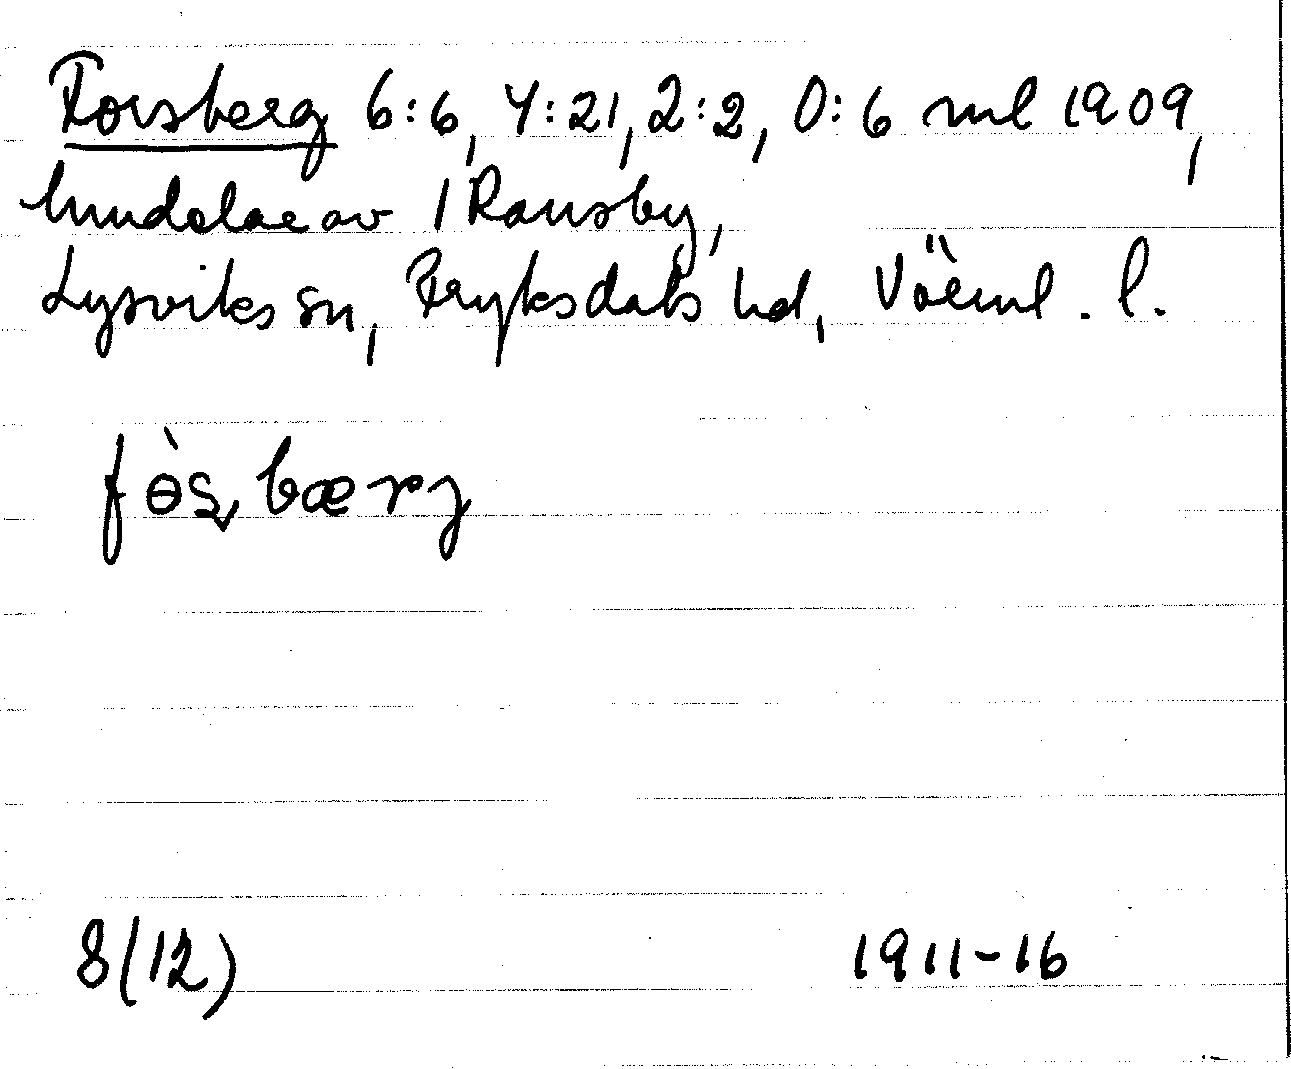 Forsberg 6:6, 4:21, 2:2, 0:6 ml 1909,
hmdelar av 1 Ransby,
Lysviks sn, Fryksdals hd, Värml. l.
fɵ̀ʂbærj
8(12) 1911-16